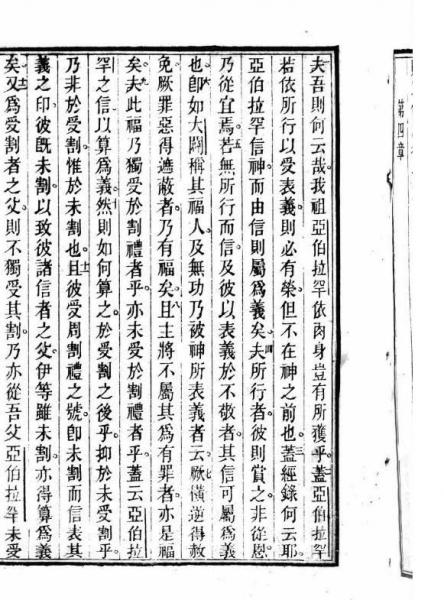 第四章
夫吾則何云哉。我祖亞伯拉罕依肉身豈有所獲乎。蓋亞伯拉罕
若依所行以受表義。則必有榮。但不在神之前也。蓋經錄何云耶。
亞伯拉罕信神而由信則屬爲義矣。夫所行者。彼則賞之。非從恩
乃從宜焉。若無所行而信及彼以表義於不敬者。其信可屬爲義
也。卽如大闢稱其福人及無功乃被神所表義者云。厥橫逆得赦
免厥罪惡得遮蔽者乃有福矣。且主將不屬其爲有罪者。亦是福
矣。夫此福乃獨受於割禮者乎。亦未受於割禮者乎。蓋云亞伯拉
罕之信以算爲義。然則如何算之。於受割之後乎。抑於未受割乎。
乃非於受割。惟於未割也。且彼受周割禮之號。卽未割而信表其
義之印。彼旣未割。以致彼諸信者之父。伊等雖未割。亦得算爲義
矣。又爲受割者之父。則不獨受其割。乃亦從吾父亞伯拉罕未受